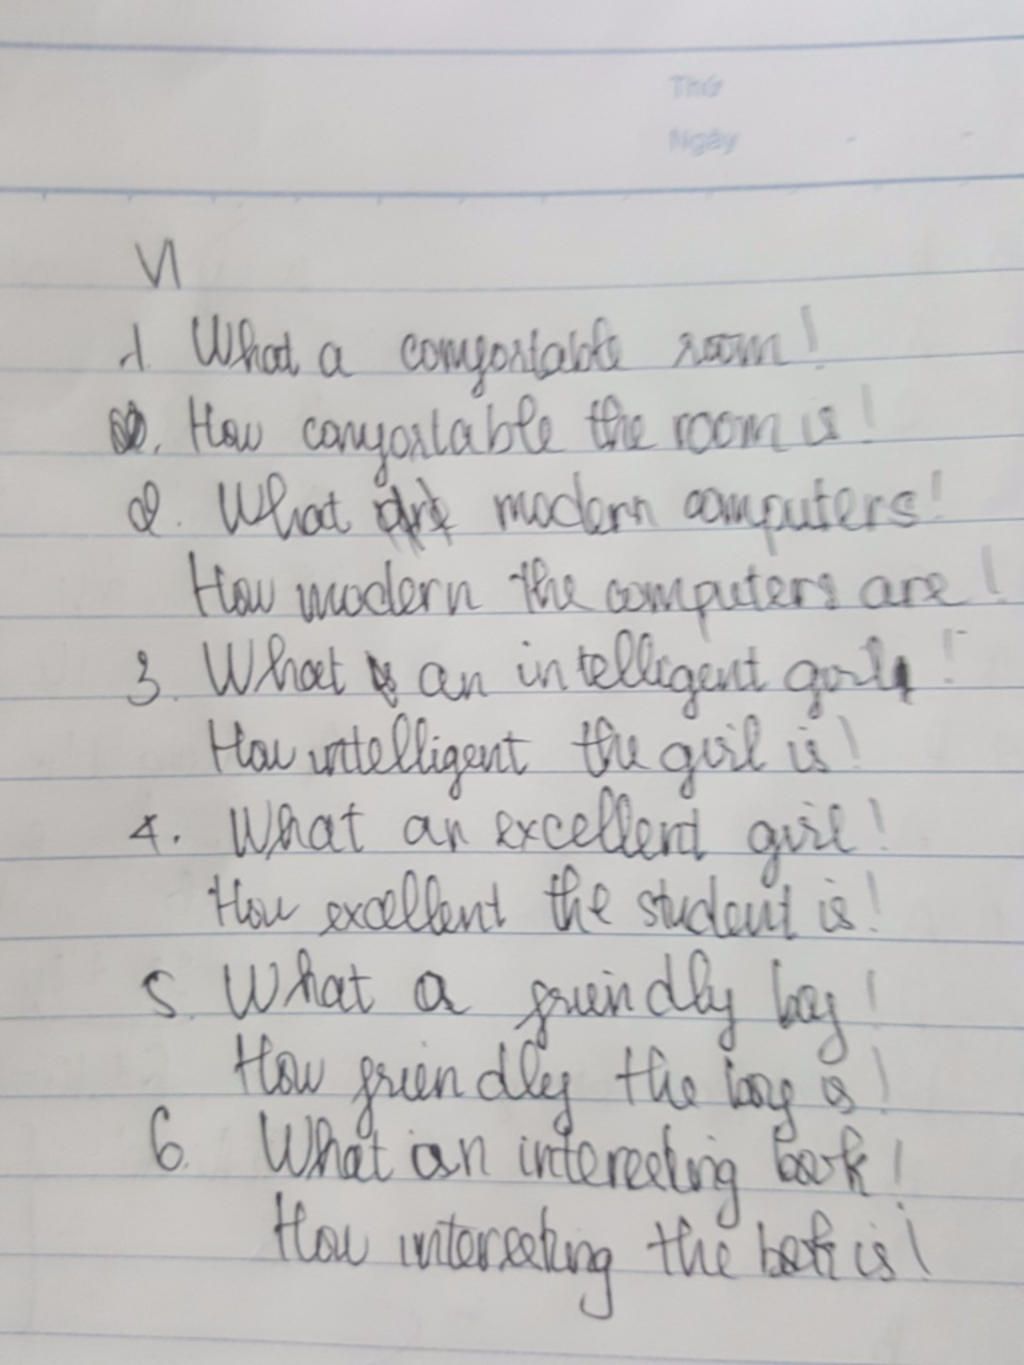 Thứ
Ngày
VI
1. What a comfortable room!
How comfortable the room is!
2. What modern computers!
How modern the computers are!
3. What an intelligent girl!
How intelligent the girl is!
4. What an excellent girl!
How excellent the student is!
5. What a friendly boy!
How friendly the boy is!
6. What an interesting book!
How interesting the book is!